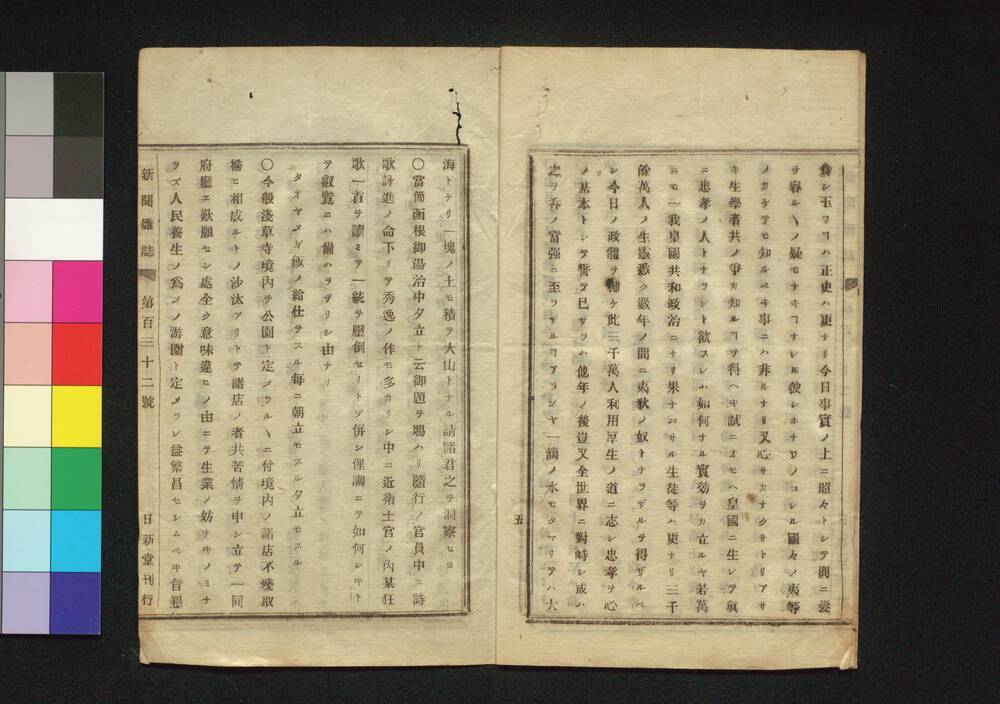 食シ玉フコハ正史ハ更ナリ今日事實ノ上ニ昭々トシテ間ニ髪
ヲ容ルヽノ疑モナキコナレモ彼シホナワノコレル國々ノ夷等
ノカケテモ知ルベキ事ニハ非ルナリ又心サカナクサトリアサ
キ生學者共ノ爭カ知ルコヲ得ヘキ試ニオモヘ皇國ニ生レテ眞
ニ忠孝ノ人トナラント欲スレハ如何ナル實効ヲカ立ルヤ若萬
ニモ一我皇國共和政治ニナリ果ナバサル生徒等ハ更ナリ三千
餘萬人ノ生靈悉ク數年ノ間ニ夷狄ノ奴トナラザルヲ得ザルベ
シ今日ノ政體ヲ補ケ此三千萬人利用厚生ノ道ニ志シ忠孝ヲ心
ノ基本トシテ誓テ已ザラハ他年ノ後豈又全世界ニ對峙シ或ハ
之ヲ呑ノ富强ニ至ラザルコアランヤ一滴ノ水モタマリテハ大
五
海トナリ一塊ノ土モ積テ大山トナル請諸君之ヲ洞察セヨ
○當節凾根御湯治中夕立ト云御題ヲ賜ハリ隨行ノ官員中エ詩
歌詠進ノ命下リテ秀逸ノ作モ多カリシ中ニ近衛士官ノ內某狂
歌一首ヲ讀ミテ一統ヲ壓倒セリトゾ併シ俚調ニテ如何シキトテ
叡覧ニハ備ハラザリシ由ナリ
タオヤメガ飯ノ給仕ヲスル毎ニ朝立モスル夕立モスル
○今般淺草寺境內ヲ公園ト定メラルヽニ付境內ノ諸店不殘取
拂ヒ相成ルトノ沙汰アリトテ諸店ノ者共苦情ヲ申シ立テ一同
府廳エ歎願セシ處全ク意味違ヒノ由ニテ生業ノ妨ヲキノミナ
ラズ人民養生ノ爲メノ游園ト定メラレ益繁昌セシムベキ旨懇
新聞雜誌 第百三十二號 日新堂刊行